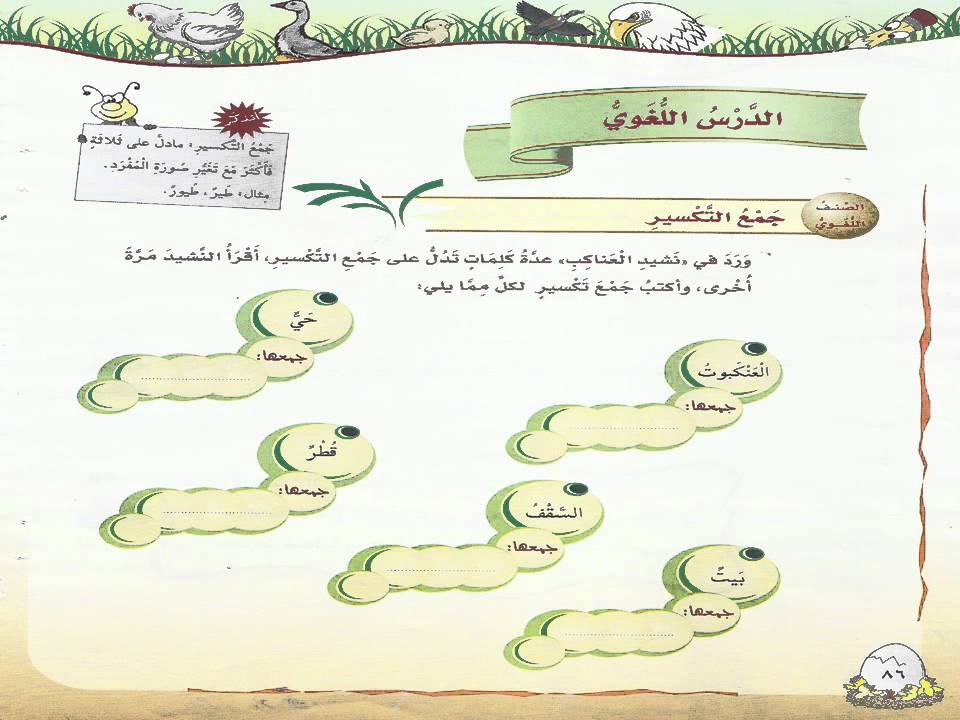 الدَّرْسُ اللُّغَوِيُّ
أتذكر
جَمْعُ التَّكسيرِ: مادلَّ على ثَلاثَةٍ
فَأَكْثَرَ مَعَ تَغَيُّرِ صُورَةِ الْمُفْرَدِ.
مِثال: طَيرٌ، طُيورٌ.
الصّنفُ
اللُّغويُّ
جَمْعُ التَّكْسيرِ
وَرَدَ في «نَشيدِ الْعَناكِبِ» عدَّةُ كَلِماتٍ تَدُلُّ على جَمْعِ التَّكْسيرِ، أَقْرَأُ النَّشيدَ مَرَّةً
أُخْرى، وأكتبُ جَمْعَ تَكْسيرٍ لكلٍّ مِمَّا يلي:
الْعَنْكَبوتُ
جمعها: ..............................
حَيٌّ
جمعها: ..............................
قُطْرٌ
جمعها: ..............................
السَّقْفُ
جمعها: ..............................
بَيتٌ
جمعها: ..............................
٨٦